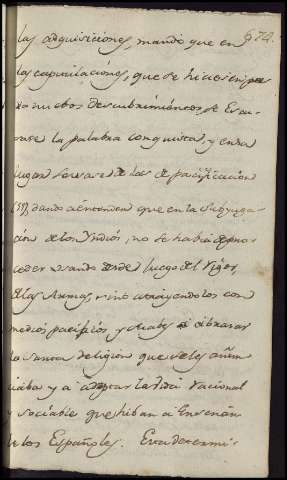 las adquisiciones, mando que en 672.
las capitulaciónes, que se hiciesen para
nuebos descubrimiéntos, se Escu-
sase la palabra conquista, y en su
lugar se usase de las de pacificacion
dando aéntender que en la Subyuga-
ción de los Yndiós, no se había de pro-
ceder usando desde luego del rigor,
de las Armas, sinó atrayendolos con
medios pacificos y á abrasar
la Santa Religion que se les anun-
ciaba y a adoptar la vida racional
y sociable que hiban a Enseñar
les los Españoles. Esta determi-